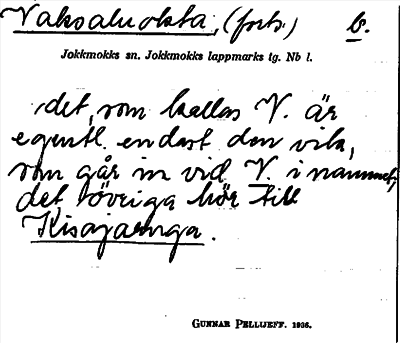 Vaksaluokta, (forts.) b.
Jokkmokks sn. Jokkmokks lappmarks tg. Nb l.
det, som kallas V. är
egentl. endast den vik,
som går in vid V. i namnet;
det övriga hör till
Kisajaenga.
GUNNAR PELLIJEFF. 1936.